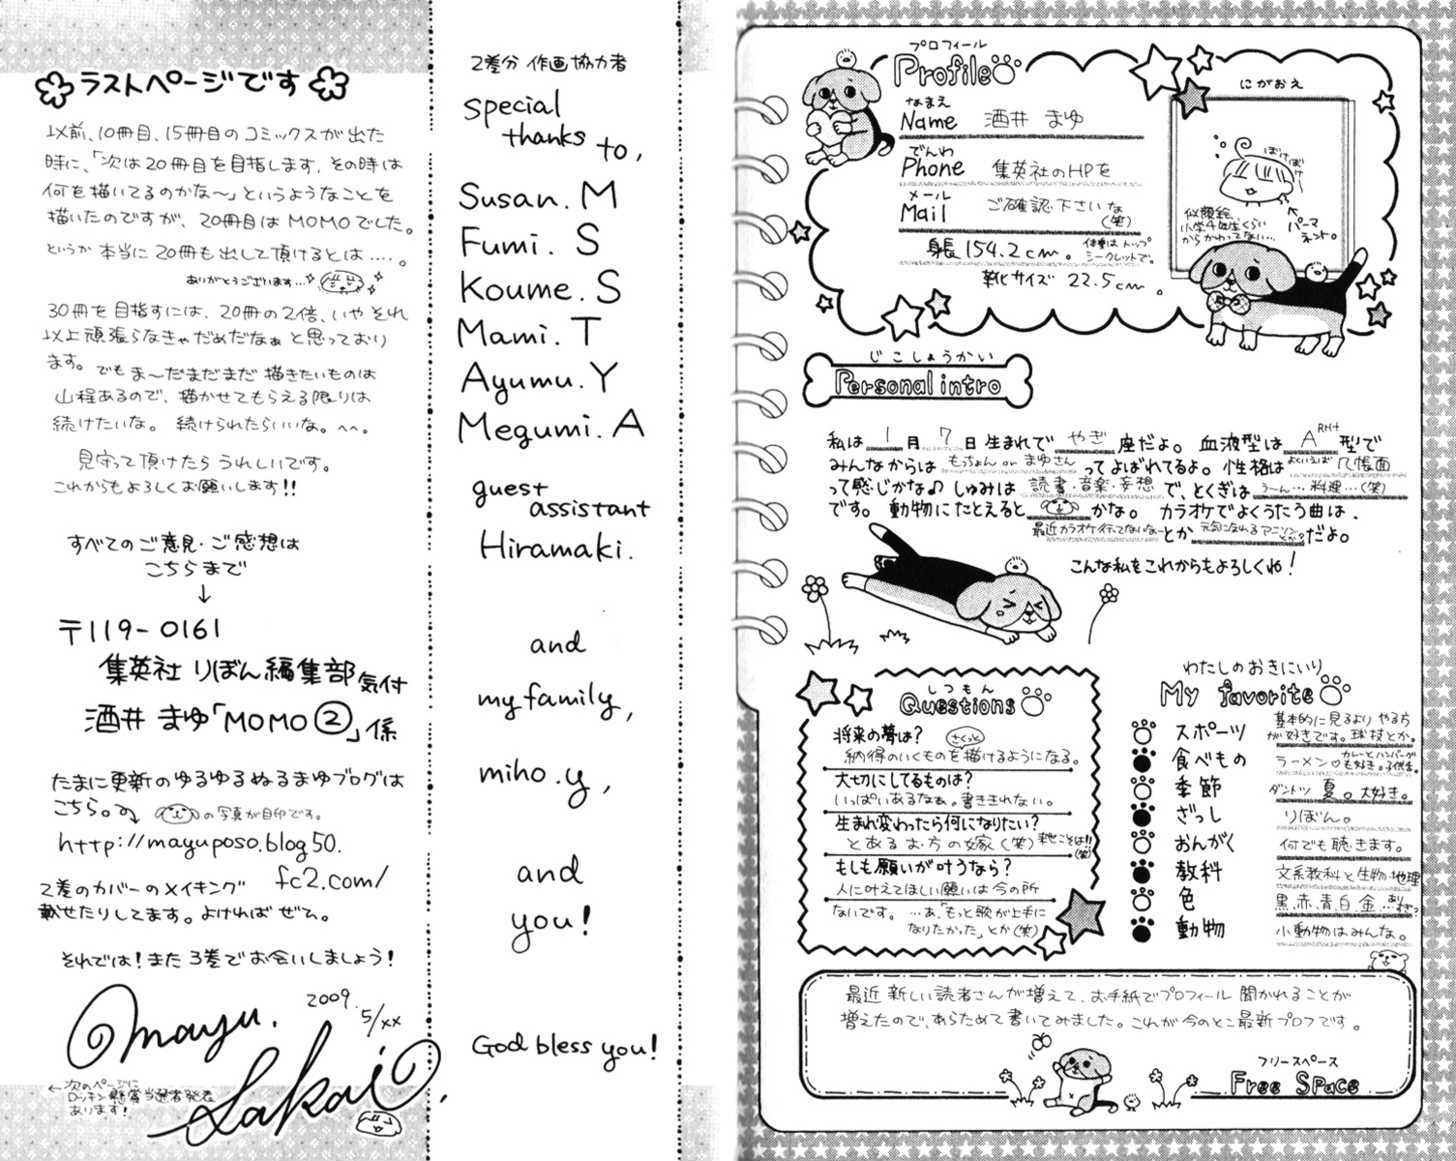 ラストページです
以前、10冊目、15冊目のコミックスが出た
時に、「次は20冊目を目指します。その時は
何を描いてるのかな〜」というようなことを
描いたのですが、20冊目はMOMOでした。
というか本当に20冊も出して頂けるとは….。
ありがとうございます…
30冊を目指すには、20冊の2倍、いやそれ
以上頑張らなきゃだめだなぁと思っており
ます。でもま〜だまだまだ描きたいものは
山程あるので、描かせてもらえる限りは
続けたいな。続けられたらいいな。^^。
見守って頂けたらうれしいです。
これからもよろしくお願いします!!
すべてのご意見・ご感想は
こちらまで
↓
〒119-0161
集英社 りぼん編集部気付
酒井 まゆ「MOMO②」係
たまに更新のゆるゆるぬるまゆブログは
こちら。 の写真が目印です。
http://mayuposo.blog50.
fc2.com/
2巻のカバーのメイキング
載せたりしてます。よければぜひ。
それでは!また3巻でお会いしましょう!
2009.
5/xx
mayu.
Sakai
←次のページに
ロッキン懸賞当選者発表
あります!
2巻分 作画協力者
special
thanks to,
Susan. M
Fumi. S
Koume. S
Mami. T
Ayumu. Y
Megumi. A
guest
assistant
Hiramaki.
and
my family,
miho.y,
and
you!
God bless you!
プロフィール
Profile
なまえ
Name 酒井 まゆ
でんわ
Phone 集英社のHPを
メール
Mail ご確認下さいな
(笑)
身長154.2cm。体重はトップ
シークレットで。
靴サイズ 22.5cm。
にがおえ
ぼけぼけ〜
似顔絵、
小学4年生くらい
からかわってない…
パーマ
ネント。
じこしょうかい
Personal intro
私は 1 月 7 日生まれで やぎ 座だよ。血液型は A RH+ 型で
みんなからは もっちょん or まゆさん ってよばれてるよ。性格は よくいえば 几帳面
って感じかな♪ しゅみは 読書・音楽・妄想 で、とくぎは うーん…料理…(笑)
です。動物にたとえると かな。カラオケでよくうたう曲は、
最近カラオケ行ってないなー とか 元気になれるアニソン だよ。
こんな私をこれからもよろしくね!
しつもん
Questions
将来の夢は?
さくっと
納得のいくものを描けるようになる。
大切にしてるものは?
いっぱいあるなぁ。書ききれない。
生まれ変わったら何になりたい?
とあるお方の嫁(笑) 来世こそは!!
(笑)
もしも願いが叶うなら?
人に叶えてほしい願いは今の所
ないです。…あ、「もっと歌が上手に
なりたかった」とか(笑)
わたしのおきにいり
My favorite
スポーツ 基本的に見るよりやる方
が好きです。球技とか。
食べもの ラーメン♡ カレーとハンバーグ
も好き。子供舌。
季節 ダントツ 夏。大好き。
ざっし りぼん。
おんがく 何でも聴きます。
教科 文系教科と生物・地理
色 黒、赤、青、白、金…
動物 小動物はみんな。
最近新しい読者さんが増えて、お手紙でプロフィール聞かれることが
増えたので、あらためて書いてみました。これが今のとこ最新プロフです。
フリースペース
Free Space